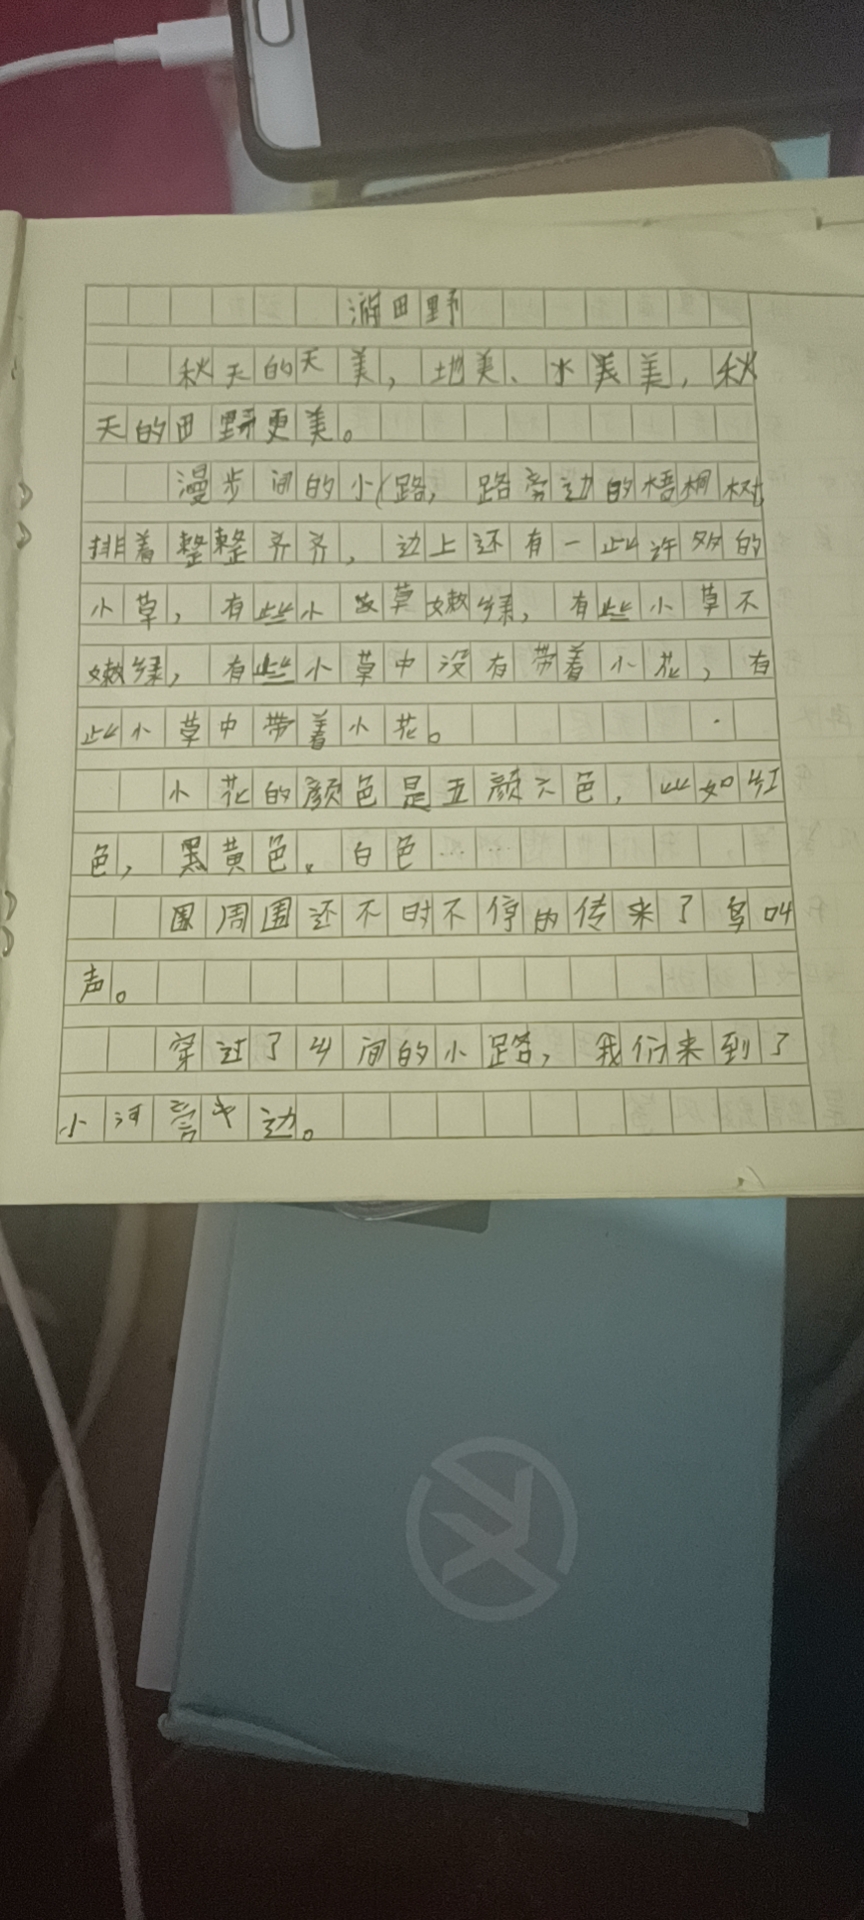 游田野
秋天的天美，地美、水美美，秋
天的田野更美。
漫步间的小路，路旁边的梧桐树
排着整整齐齐，边上还有一些许多的
小草，有些小草嫩绿，有些小草不
嫩绿，有些小草中没有带着小花，有
些小草中带着小花。
小花的颜色是五颜六色，比如红
色，黑黄色、白色……
围周围还不时不停的传来了鸟叫
声。
穿过了乡间的小路，我们来到了
小河边。